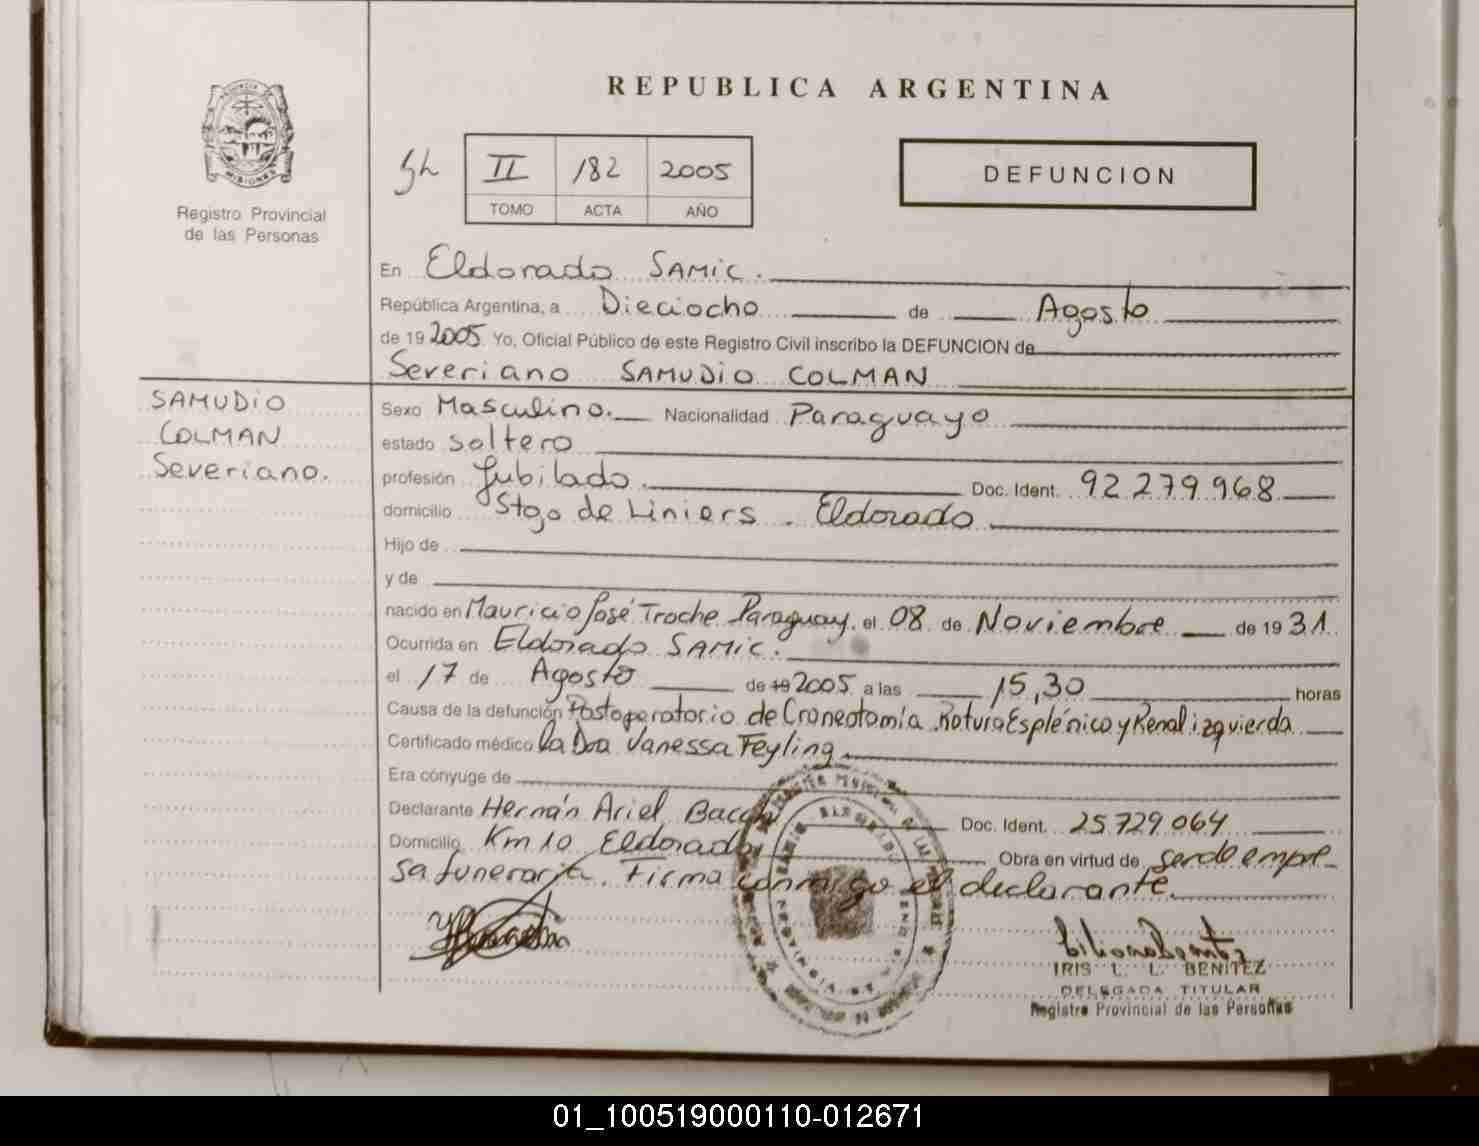 REPUBLICA ARGENTINA
MISIONES
Registro Provincial
de las Personas
II 182 2005
TOMO ACTA AÑO
DEFUNCION
En Eldorado SAMIC.
República Argentina, a Dieciocho de Agosto
de 19 2005 Yo, Oficial Público de este Registro Civil inscribo la DEFUNCION de
Severiano SAMUDIO COLMAN
SAMUDIO
COLMAN
Severiano.
Sexo Masculino. Nacionalidad Paraguayo
estado soltero
profesión Jubilado. Doc. Ident. 92.279.968
domicilio Stgo de Liniers. Eldorado
Hijo de
y de
nacido en Mauricio José Troche Paraguay. el 08 de Noviembre de 19 31
Ocurrida en Eldorado SAMIC.
el 17 de Agosto de 19 2005 a las 15,30 horas
Causa de la defunción Postoperatorio de Craneotomía. Rotura Esplénica y Renal izquierda
Certificado médico la Dra Vanessa Feyling
Era cónyuge de
Declarante Hernán Ariel Bacchi Doc. Ident. 25.729.064
Domicilio Km 10 Eldorado Obra en virtud de ser de empre-
sa funeraria. Firma conmigo el declarante.
IRIS L. L. BENITEZ
DELEGADA TITULAR
Registro Provincial de las Personas
01_100519000110-012671